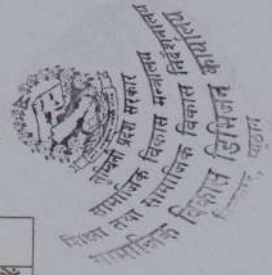 लुम्बिनी प्रदेश सरकार
सामाजिक विकास मन्त्रालय
शिक्षा तथा सामाजिक विकास निर्देशनालय
सामाजिक विकास डिभिजन कार्यालय